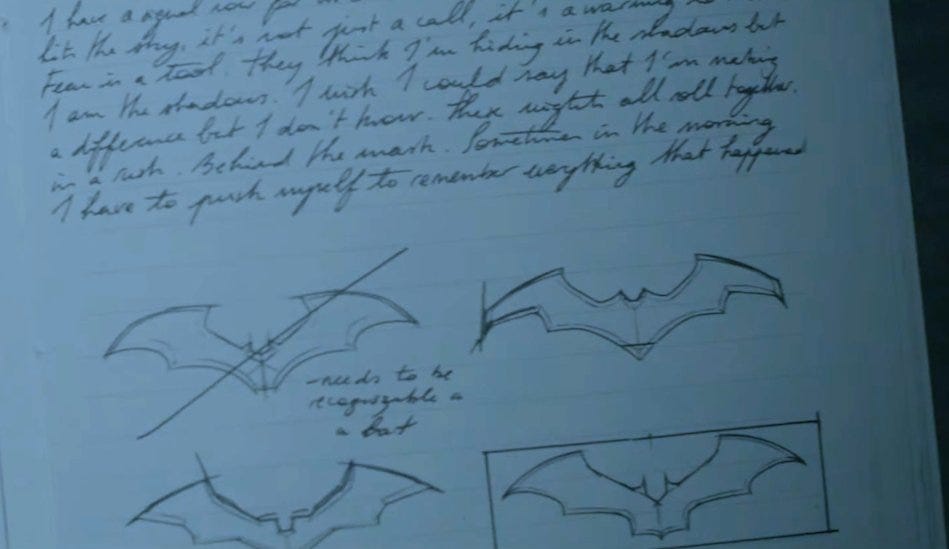 I have a signal now for
hits the sky, it's not just a call, it's a warning
Fear is a tool. They think I'm hiding in the shadows but
I am the shadows. I wish I could say that I'm making
a difference but I don't know. These nights all roll together.
in a rush. Behind the mask. Sometimes in the morning
I have to push myself to remember everything that happened
-needs to be
recognizable a
a bat